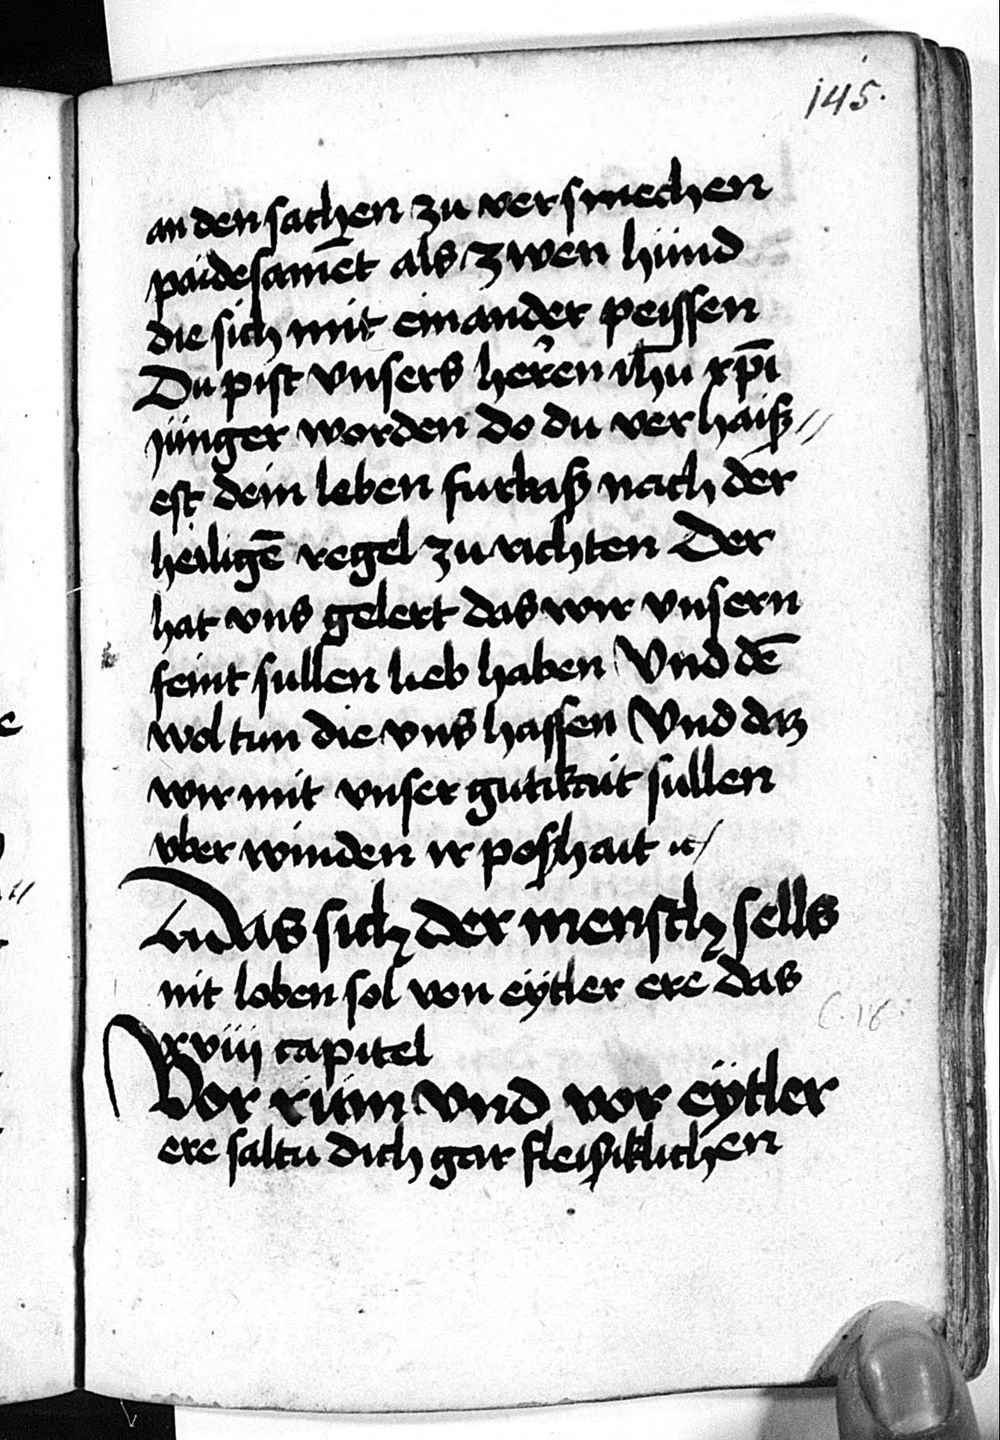 145.
an den sachen zu versmechen
paidesam̄et als zwen hund
die sich mit einander peissen
Du pist vnsers herren ihu xp̄i
junger worden do du verhaiß//
est dein leben furbaß nach der
heiligē regel zu richten Der
hat vns gelert das wir vnsern
feint sullen lieb haben Vnd dē
wol tun die vns hassen Vnd daz
wir mit vnser gutikait sullen
vber winden ir poshait
Das sich der mensch sells
nit loben sol von eytler ere das
xviij capitel
C. 18.
Vor rüm vnd vor eytler
ere saltu dich gar fleissiklichen